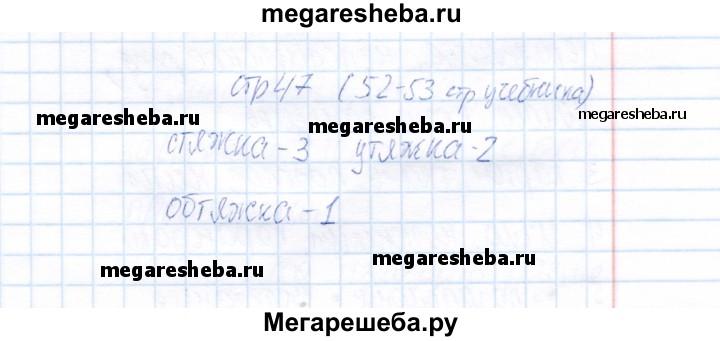 megaresheba.ru
стр 47 (52-53 стр учебника)
megaresheba.ru megaresheba.ru megaresheba.ru
стяжка - 3 утяжка - 2
обтяжка - 1
megaresheba.ru megaresheba.ru
Мегарешеба.ру